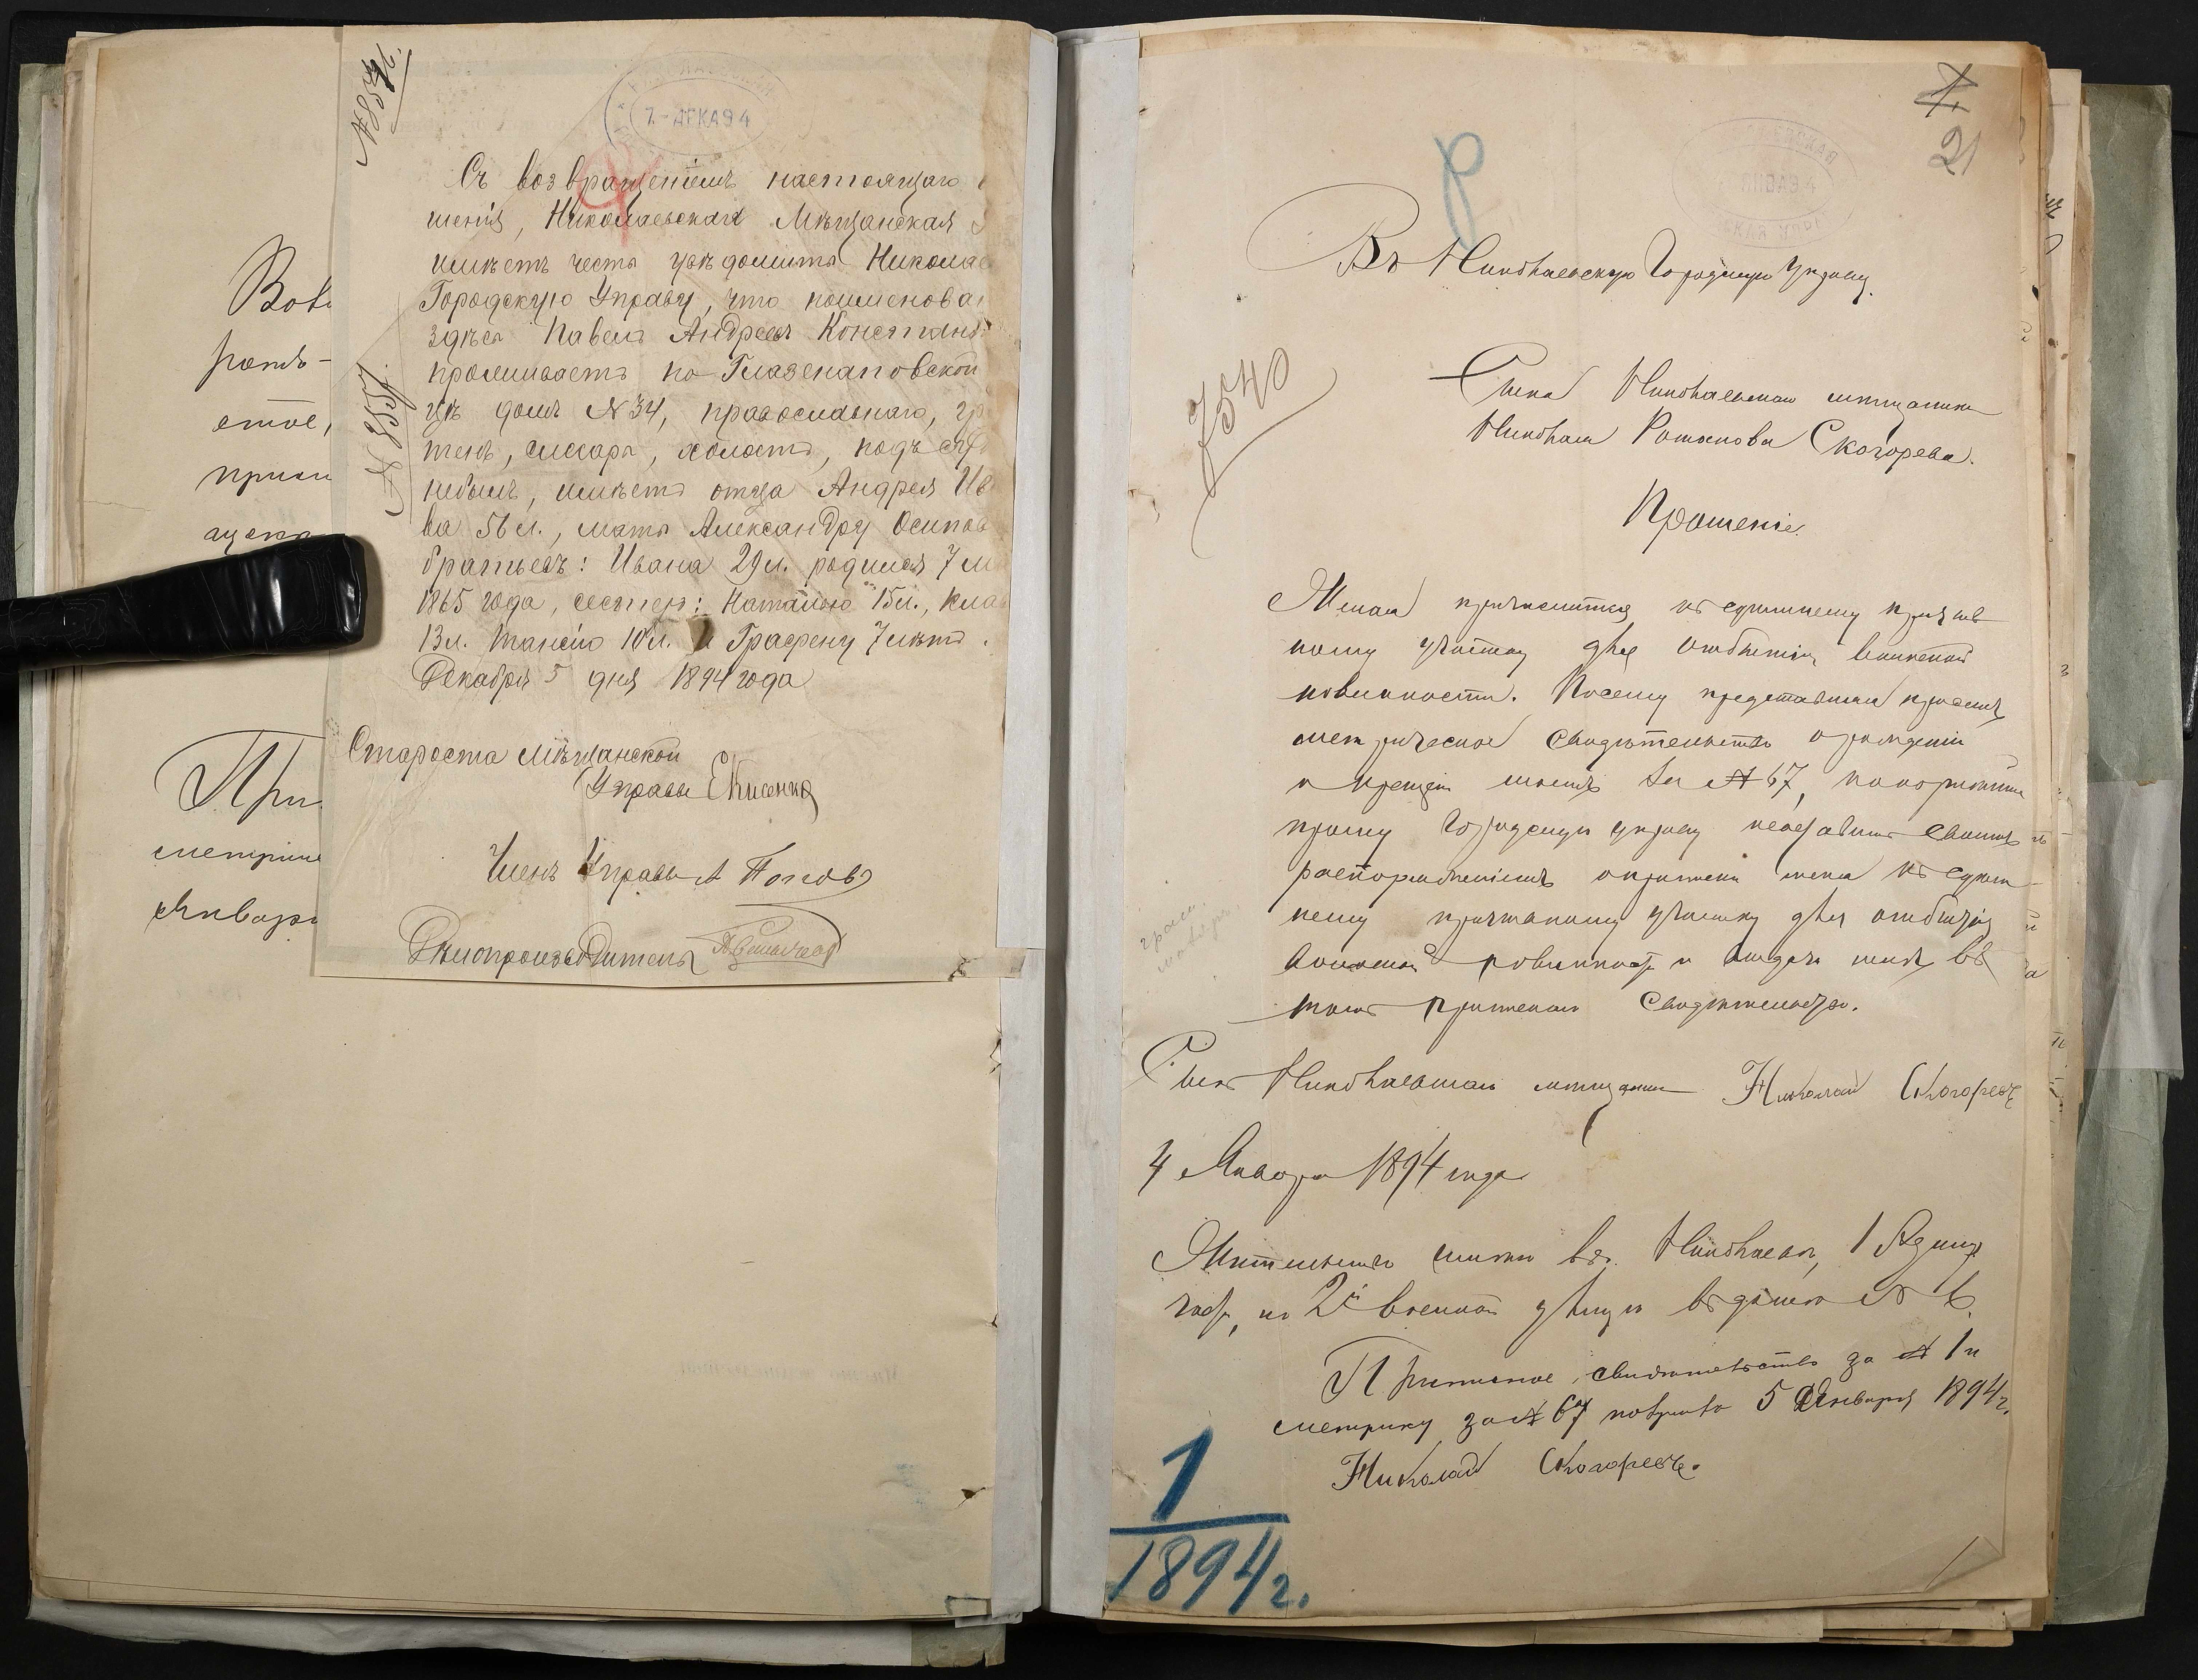 7-ДЕКА94
Съ возвращеніемъ настоящаго
шенія, Николаевская Мѣщанская
имѣетъ честь увѣдомить Николае
Городскую Управу, что поименова
здѣсь Павелъ Андреевъ Констант
проживаетъ по Глазенаповской
въ домѣ №34, православнаго, гр
тенъ, слесарь, холостъ, подъ
небылъ, имѣетъ отца Андрея Ив
ва 56 л., мать Александру Осипов
братьевъ: Ивана 29 л. родился 7
1865 года, сестеръ: Наталію 15 л., Кла
13 л. Таисію 10 л. и Графену 7 лѣтъ.
Декабря 5 дня 1894 года
Староста Мѣщанской
Управы
Членъ Управы А Поповъ
Дѣлопроизводитель
Вов
рат-
етое,
При
метрич
Январ
21
Въ Николаевскую Городскую Управу.
7540
Сына Николаевскаго мѣщанина
Николая Романова Скогорева.
Прошеніе.
Желая приписаться къ здѣшнему призыв
ному участку для отбытія воинской
повинности. Посему представляя при семъ
метрическое свидѣтельство о рожденіи
и крещеніи моемъ за № 67, покорнѣйше
прошу Городскую Управу неоставить своимъ
распоряженіемъ о припискѣ меня къ здѣш
нему призывному участку для отбытія
воинской повинности и выдачи мнѣ въ
томъ приписнаго свидѣтельства.
Сынъ Николаевскаго мѣщанина Николай Скогоревъ
4 Января 1894 года
Жительство имѣю въ г. Николаевѣ, 1 Адмир
част, по 2й военной улицѣ въ домѣ № 6.
Приписное свидѣтельство за № 1 и
метрику за № 67 получилъ 5 Января 1894 г.
Николай Скогоревъ.
1
1894 г.